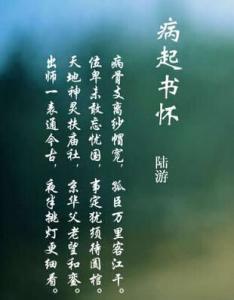 病起书怀
陆游
病骨支离纱帽宽，孤臣万里客江干。
位卑未敢忘忧国，事定犹须待阖棺。
天地神灵扶庙社，京华父老望和銮。
出师一表通今古，夜半挑灯更细看。